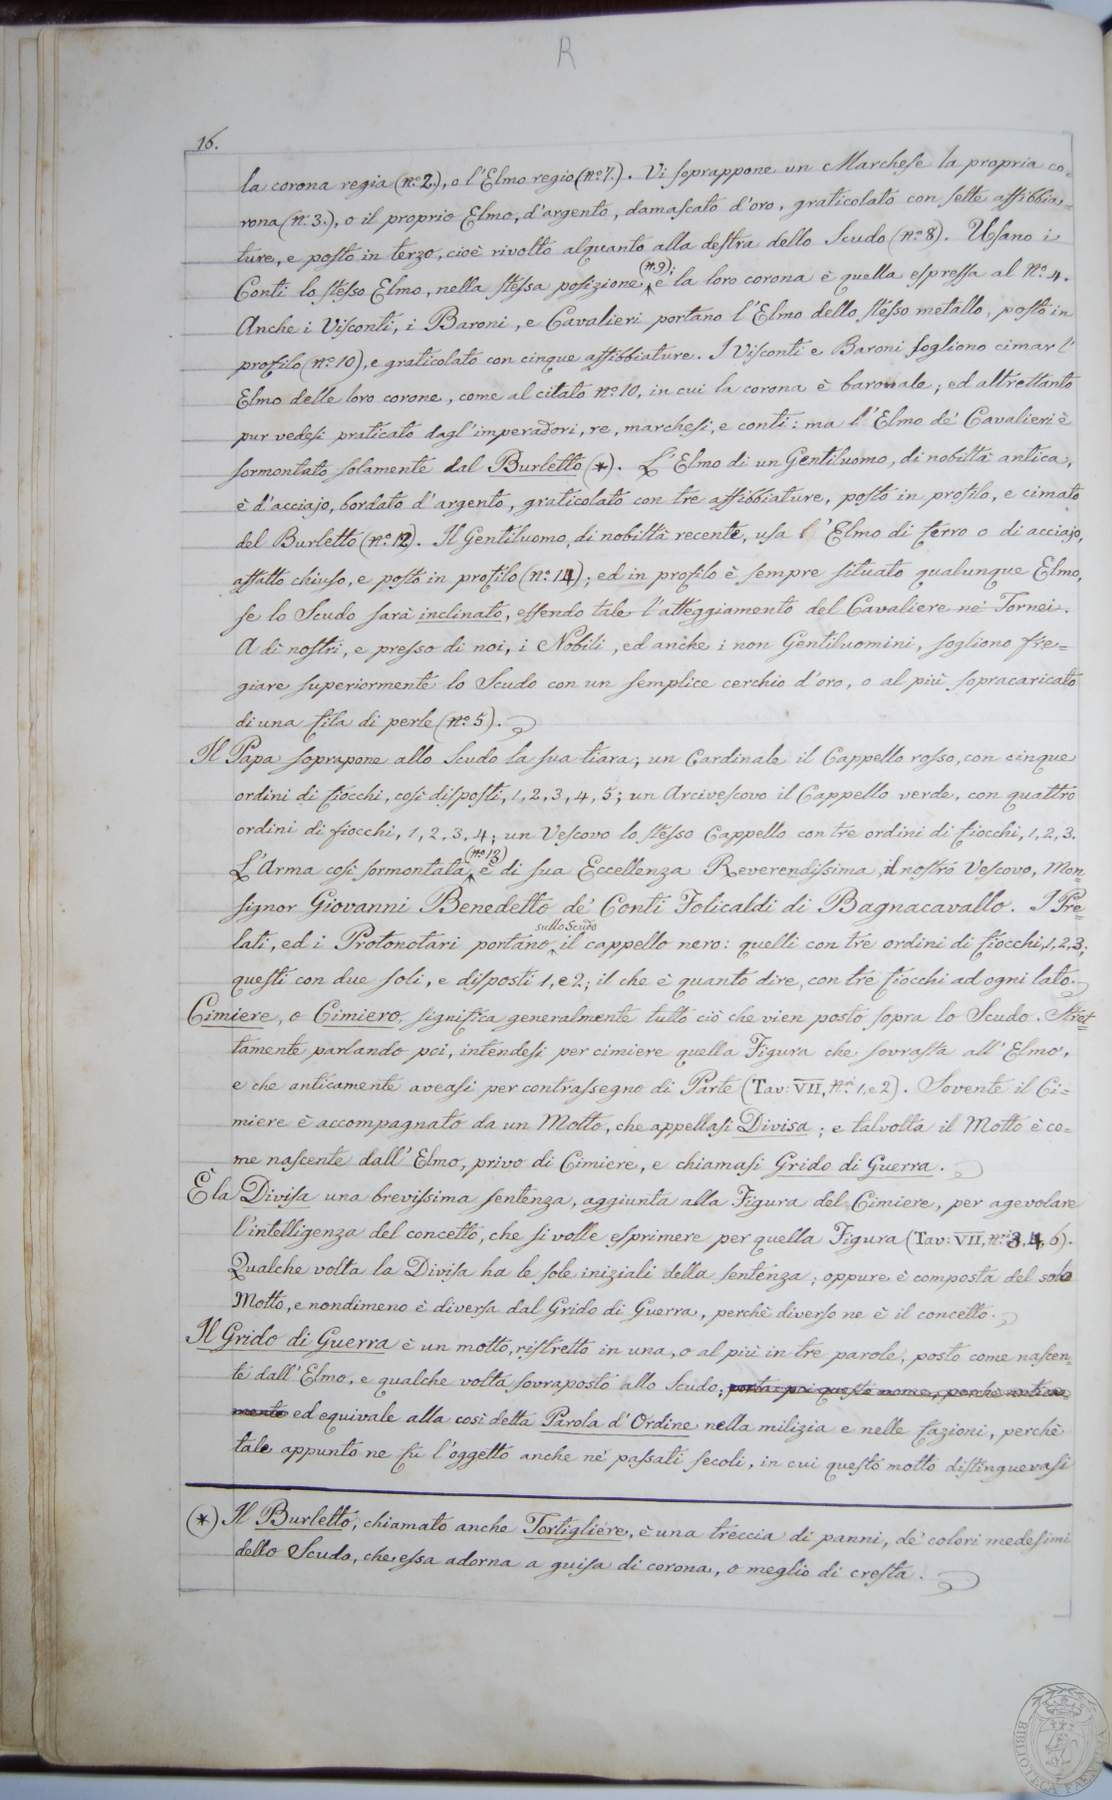 R
16.
la corona regia (nº 2), o l'Elmo regio (nº 7.). Vi soprappone un Marchese la propria co=
rona (nº 3.), o il proprio Elmo, d'argento, damascato d'oro, graticolato con sette affibbia=
ture, e posto in terzo, cioè rivolto alquanto alla destra dello Scudo (nº 8). Usano i
(nº 9);
Conti lo stesso Elmo, nella stessa posizione ‸ e la loro corona è quella espressa al Nº 4.
Anche i Visconti, i Baroni, e Cavalieri portano l'Elmo dello stesso metallo, posto in
profilo (nº 10), e graticolato con cinque affibbiature. I Visconti e Baroni sogliono cimar l'
Elmo delle loro corone, come al citato nº 10, in cui la corona è baronale; ed altrettanto
pur vedesi praticato dagl'imperadori, re, marchesi, e conti: ma l'Elmo de' Cavalieri è
sormontato solamente dal Burletto (*). L'Elmo di un Gentiluomo, di nobiltà antica,
è d'acciajo, bordato d'argento, graticolato con tre affibbiature, posto in profilo, e cimato
del Burletto (nº 12). Il Gentiluomo, di nobiltà recente, usa l'Elmo di ferro o di acciajo,
affatto chiuso, e posto in profilo (nº 14); ed in profilo è sempre situato qualunque Elmo,
se lo Scudo sarà inclinato, essendo tale l'atteggiamento del Cavaliere ne' Tornei.
A dì nostri, e presso di noi, i Nobili, ed anche i non Gentiluomini, sogliono fre=
giare superiormente lo Scudo con un semplice cerchio d'oro, o al più sopracaricato
di una fila di perle (nº 5).
Il Papa soprapone allo Scudo la sua tiara; un Cardinale il Cappello rosso, con cinque
ordini di fiocchi, così disposti, 1, 2, 3, 4, 5; un Arcivescovo il Cappello verde, con quattro
ordini di fiocchi, 1, 2, 3, 4; un Vescovo lo stesso Cappello con tre ordini di fiocchi, 1, 2, 3.
(nº 13)
L'Arma così sormontata ‸ è di sua Eccellenza Reverendissima, il nostro Vescovo, Mon=
signor Giovanni Benedetto de' Conti Folicaldi di Bagnacavallo. I Pre=
sullo Scudo
lati, ed i Protonotari portano ‸ il cappello nero: quelli con tre ordini di fiocchi, 1, 2, 3;
questi con due soli, e disposti 1, e 2; il che è quanto dire, con tre fiocchi ad ogni lato.
Cimiere, o Cimiero, significa generalmente tutto ciò che vien posto sopra lo Scudo. Stret=
tamente parlando poi, intendesi per cimiere quella Figura che sovrasta all'Elmo,
e che anticamente aveasi per contrassegno di Parte (Tav: VII, nⁱ 1, e 2). Sovente il Ci=
miere è accompagnato da un Motto, che appellasi Divisa; e talvolta il Motto è co=
me nascente dall'Elmo, privo di Cimiere, e chiamasi Grido di Guerra.
È la Divisa una brevissima sentenza, aggiunta alla Figura del Cimiere, per agevolare
l'intelligenza del concetto, che si volle esprimere per quella Figura (Tav: VII, nⁱ 3, 4, 6).
Qualche volta la Divisa ha le sole iniziali della sentenza; oppure è composta del solo
Motto, e nondimeno è diversa dal Grido di Guerra, perchè diverso ne è il concetto.
Il Grido di Guerra è un motto, ristretto in una, o al più in tre parole, posto come nascen=
te dall'Elmo, e qualche volta sovraposto allo Scudo; porta poi questo nome, perchè antica=
mente ed equivale alla così detta Parola d'Ordine nella milizia e nelle fazioni, perchè
tale appunto ne fu l'oggetto anche ne' passati secoli, in cui questo motto distinguevasi
(*) Il Burletto, chiamato anche Tortigliere, è una treccia di panni, de' colori medesimi
dello Scudo, che essa adorna a guisa di corona, o meglio di cresta.